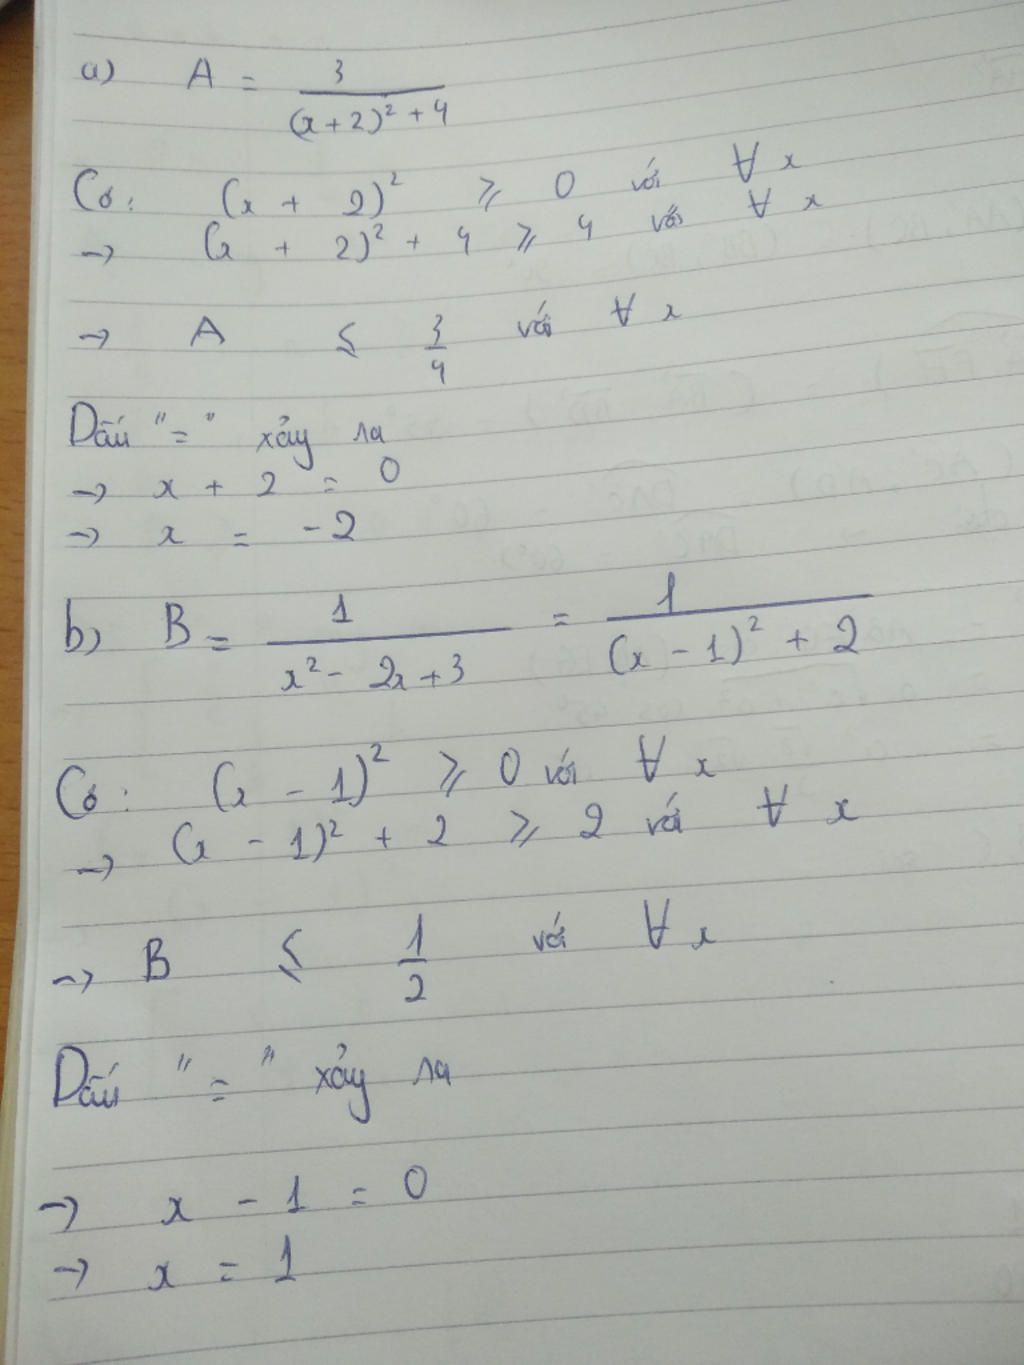 a) A = 3 / (x+2)² + 4
Có: (x + 2)² ⩾ 0 với ∀ x
→ (x + 2)² + 4 ⩾ 4 với ∀ x
→ A ≤ 3/4 với ∀ x
Dấu "=" xảy ra
→ x + 2 = 0
→ x = -2
b) B = 1 / x² - 2x + 3 = 1 / (x - 1)² + 2
Có: (x - 1)² ⩾ 0 với ∀ x
→ (x - 1)² + 2 ⩾ 2 với ∀ x
→ B ≤ 1/2 với ∀ x
Dấu "=" xảy ra
→ x - 1 = 0
→ x = 1